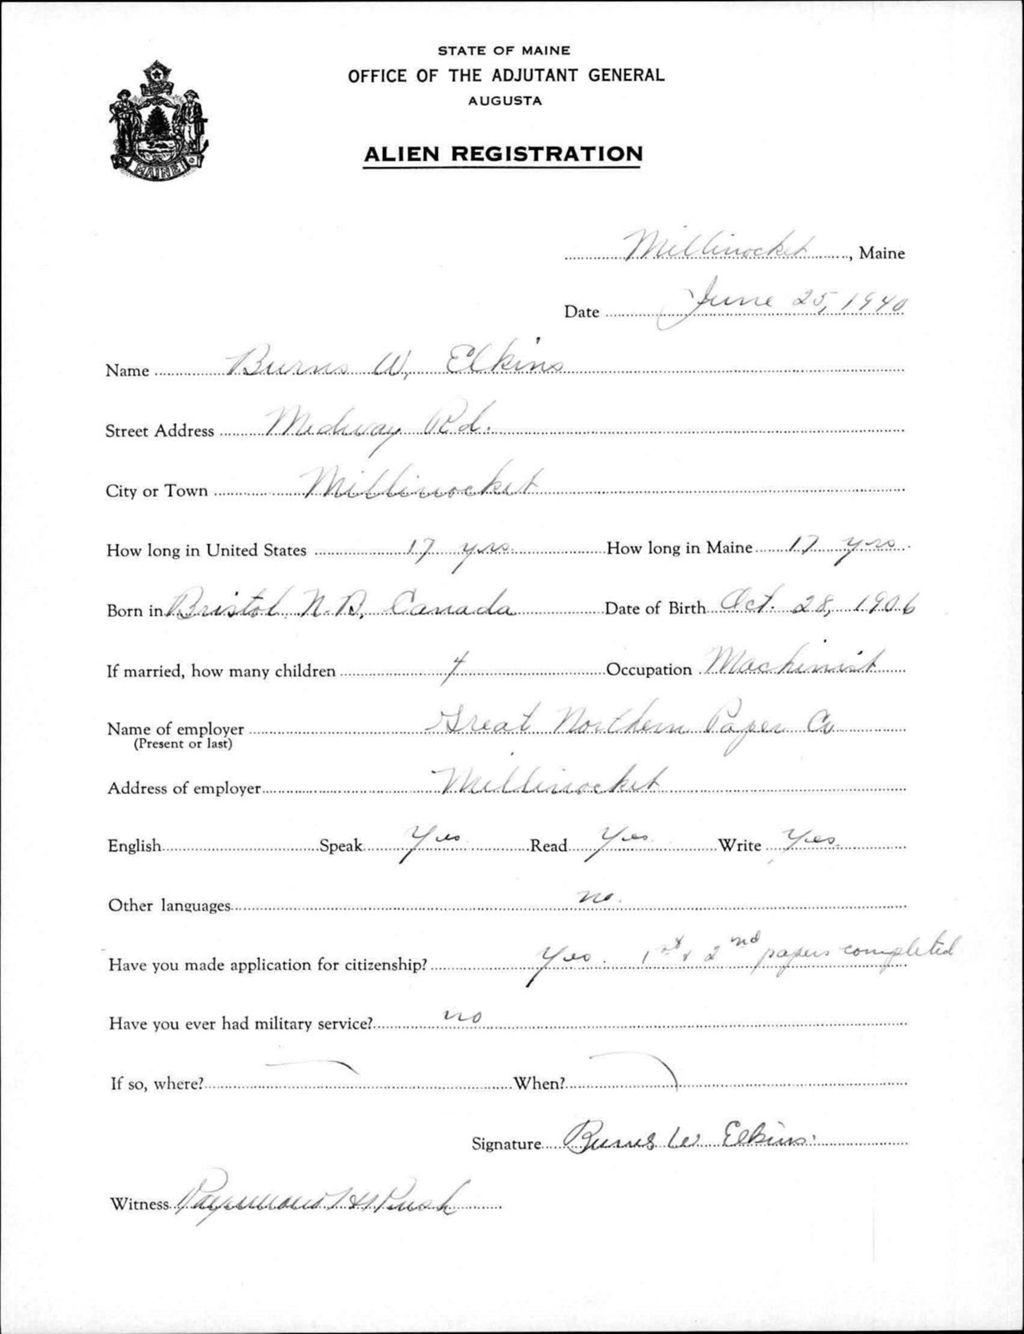 STATE OF MAINE
OFFICE OF THE ADJUTANT GENERAL
AUGUSTA
ALIEN REGISTRATION
MAINE
Millinocket, Maine
Date June 25, 1940
Name Burns W. Elkins
Street Address Medway Rd.
City or Town Millinocket
How long in United States 17 yrs. How long in Maine 17 yrs.
Born in Bristol, N.B. Canada Date of Birth Oct. 28, 1906
If married, how many children 4 Occupation Machinist
Name of employer Great Northern Paper Co
(Present or last)
Address of employer Millinocket
English Speak Yes Read Yes Write Yes.
Other languages no.
Have you made application for citizenship? Yes. 1st & 2nd papers completed
Have you ever had military service? no
If so, where? When?
Signature Burns W Elkins.
Witness Raymond H Rush